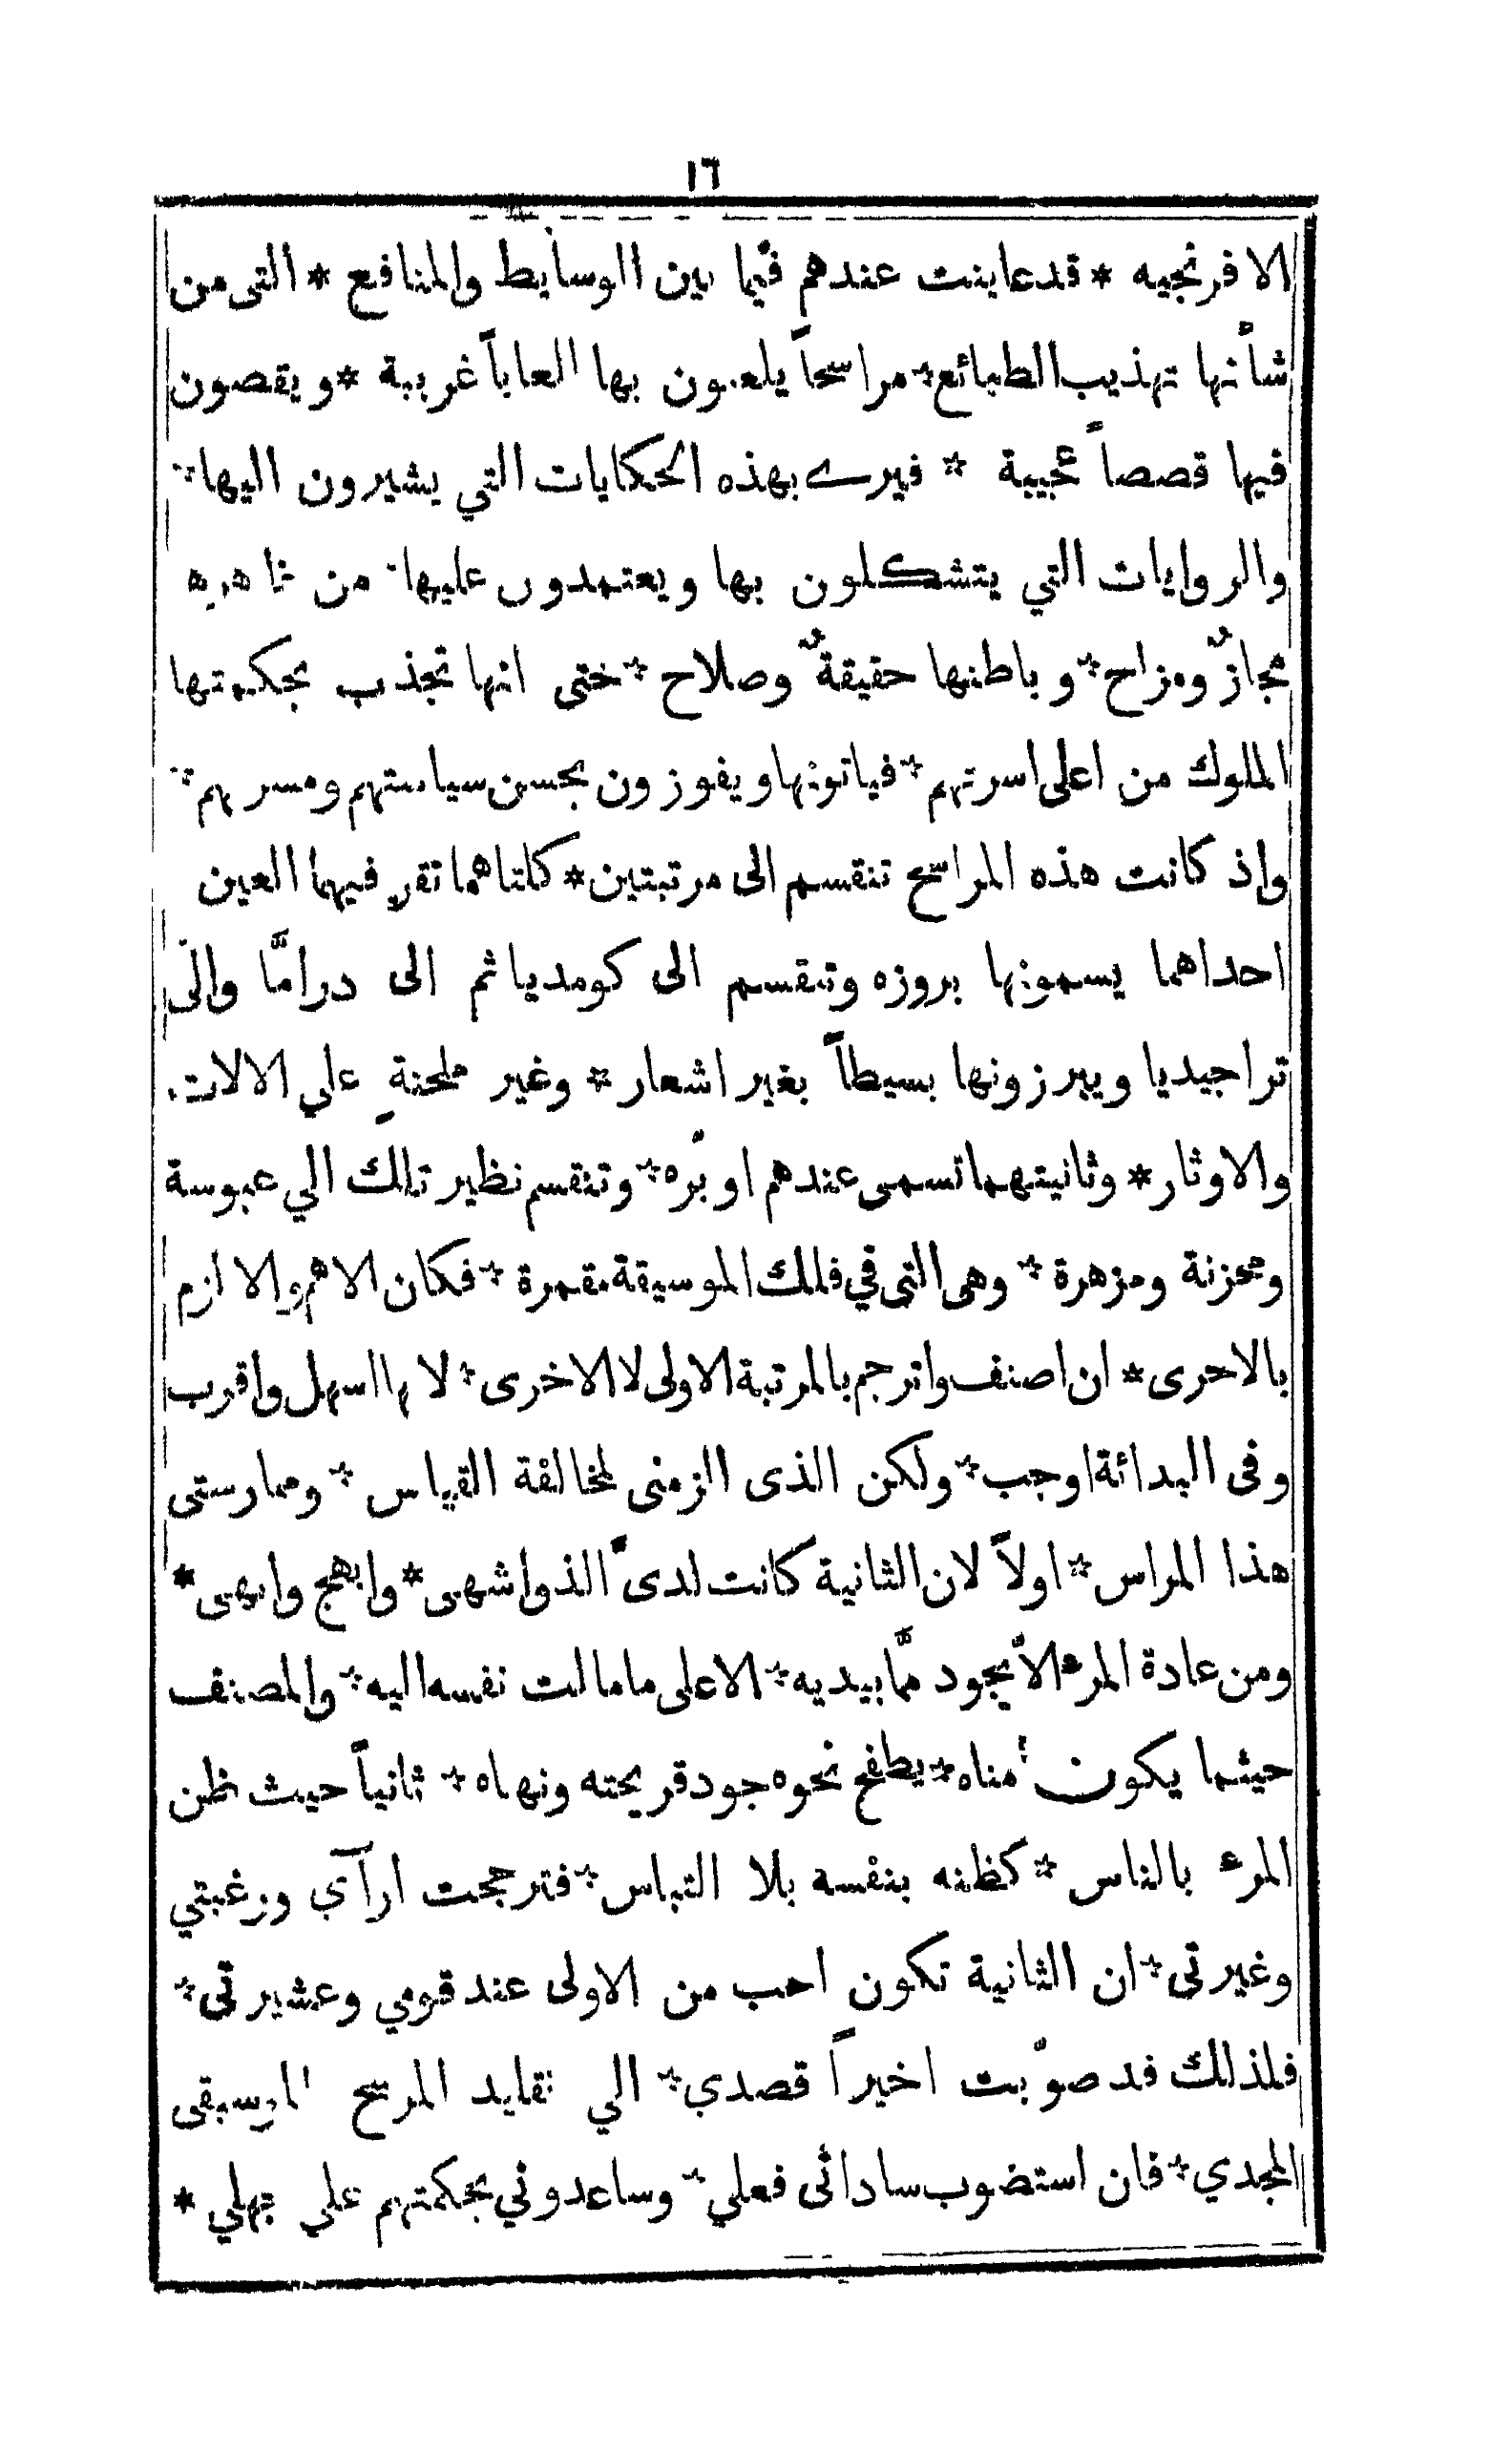 ١٦
الافرنجيه * قد عاينت عندهم فيما بين الوسايط والمنافع * التي من
شأنها تهذيب الطبائع * مراسحاً يلعبون بها العاباً غريبة * ويقصون
فيها قصصاً عجيبة * فيرى بهذه الحكايات التي يشيرون اليها *
والروايات التي يتشكلون بها ويعتمدون عليها * من ظاهره
مجازٌ ومزاح * وباطنها حقيقةٌ وصلاح * حتى انها تجذب بحكمتها
الملوك من اعلى اسرتهم * فياتونها ويفوزون بحسن سياستهم ومسرتهم *
واذ كانت هذه المراسح تنقسم الى مرتبتين * كلتاهما تقر فيهما العين
احداهما يسمونها بروزه وتنقسم الى كومديا ثم الى درامّا والى
تراجيديا ويبرزونها بسيطاً بغير اشعار * وغير ملحنةٍ علي الالات
والاوثار * وثانيتهما تسمى عندهم اوبّره * وتنقسم نظير تلك الي عبوسة
ومحزنة ومزهرة * وهى التى في فلك الموسيقة مقمرة * فكان الاهم والا لزم
بالاحرى * ان اصنف واترجم بالمرتبة الاولى لا الاخرى * لانها اسهل واقرب
وفى البدائة اوجب * ولكن الذى الزمنى لمخالفة القياس * وممارستى
هذا المراس * اولاً لان الثانية كانت لدىّ الذ واشهى * وابهج وابهى *
ومن عادة المرء الاّ يجود ممّا بيديه * الا على ما مالت نفسه اليه * والمصنف
حيثما يكون مُناه * يطفح نحوه جود قريحته ونهاه * ثانياً حيث ظن
المرء بالناس * كظنه بنفسه بلا التباس * فترجحت ارآي ورغبتي
وغيرتى * ان الثانية تكون احب من الاولى عند قومي وعشيرتى *
فلذلك قد صوّبت اخيراً قصدي * الي تقليد المرسح الموسيقى
المجدي * فان استضوب ساداتى فعلي * وساعدوني بحكمتهم علي جهلي *